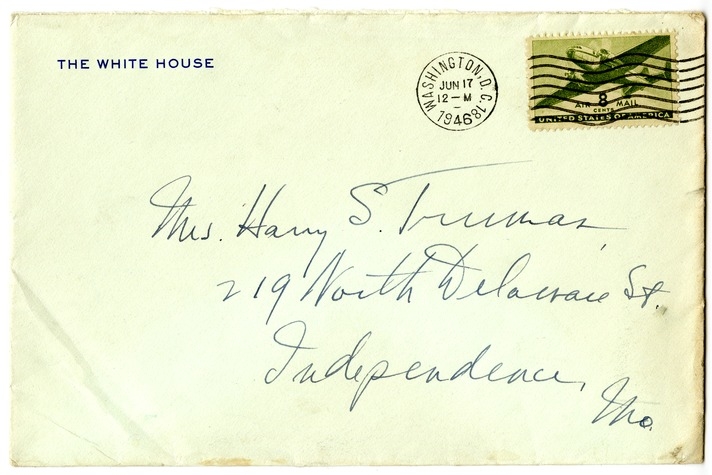 THE WHITE HOUSE
WASHINGTON, D.C. 18
JUN 17
12 – M
1946
8
CENTS
AIR MAIL
UNITED STATES OF AMERICA
Mrs. Harry S. Truman,
219 North Delaware St.
Independence,
Mo.